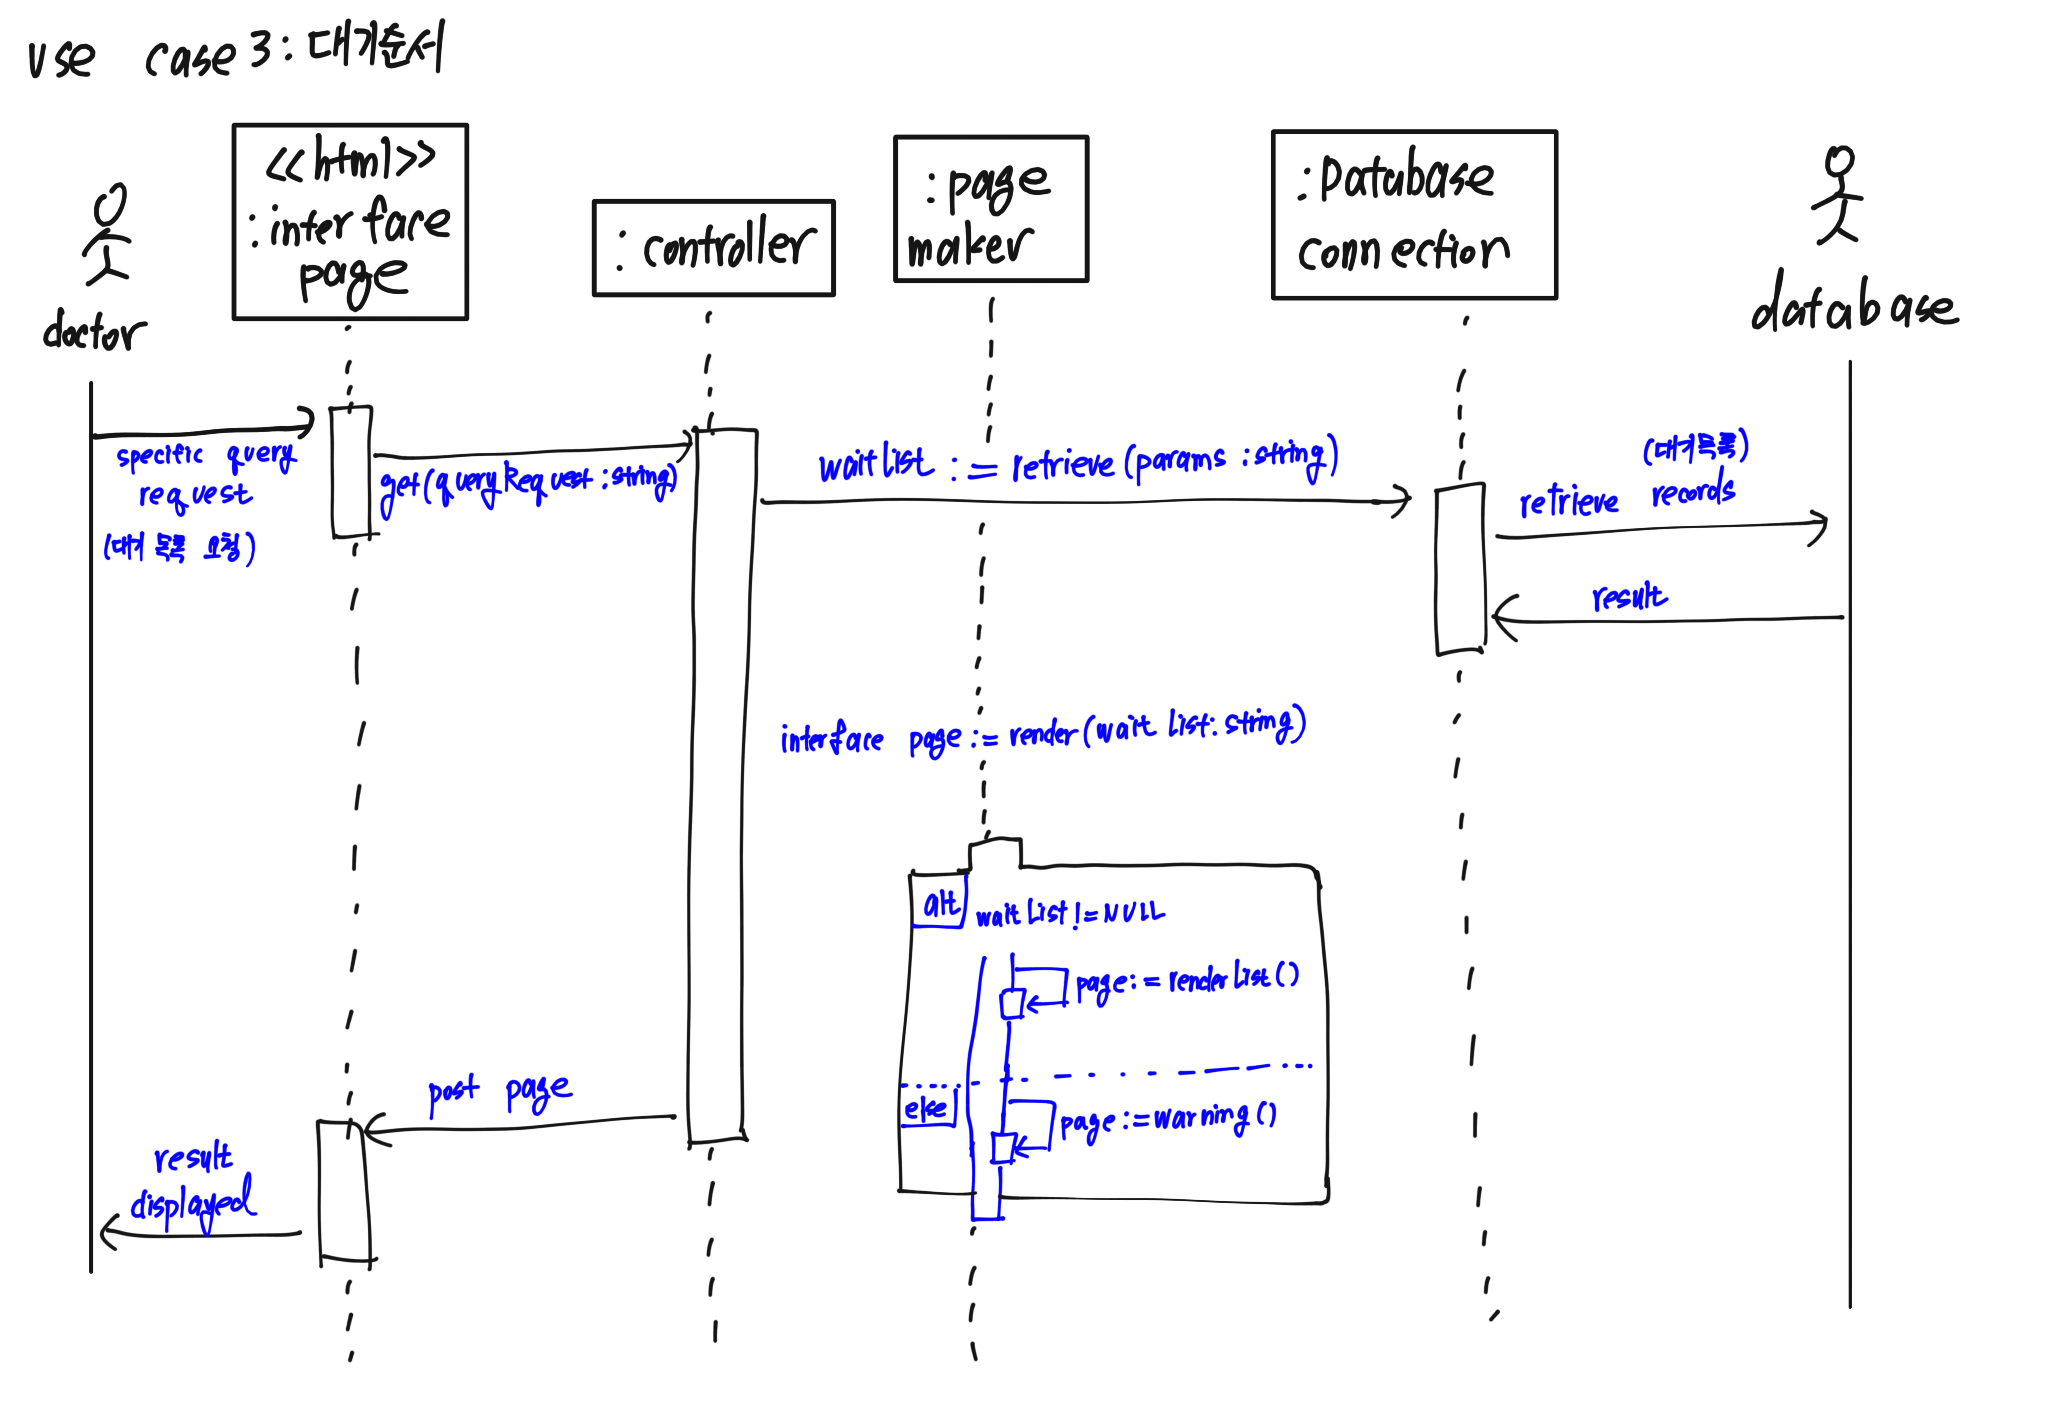 use case 3 : 대기순서
doctor
<<html>>
: interface
page
: controller
: page
maker
: Database
connection
database
specific query
request
(대기 목록 요청)
get(queryRequest : string)
waitlist := retrieve (params : string)
(대기목록)
retrieve records
result
interface page := render(wait list : string)
alt
wait list != NULL
page := render list ()
else
page := warning ()
post page
result
displayed